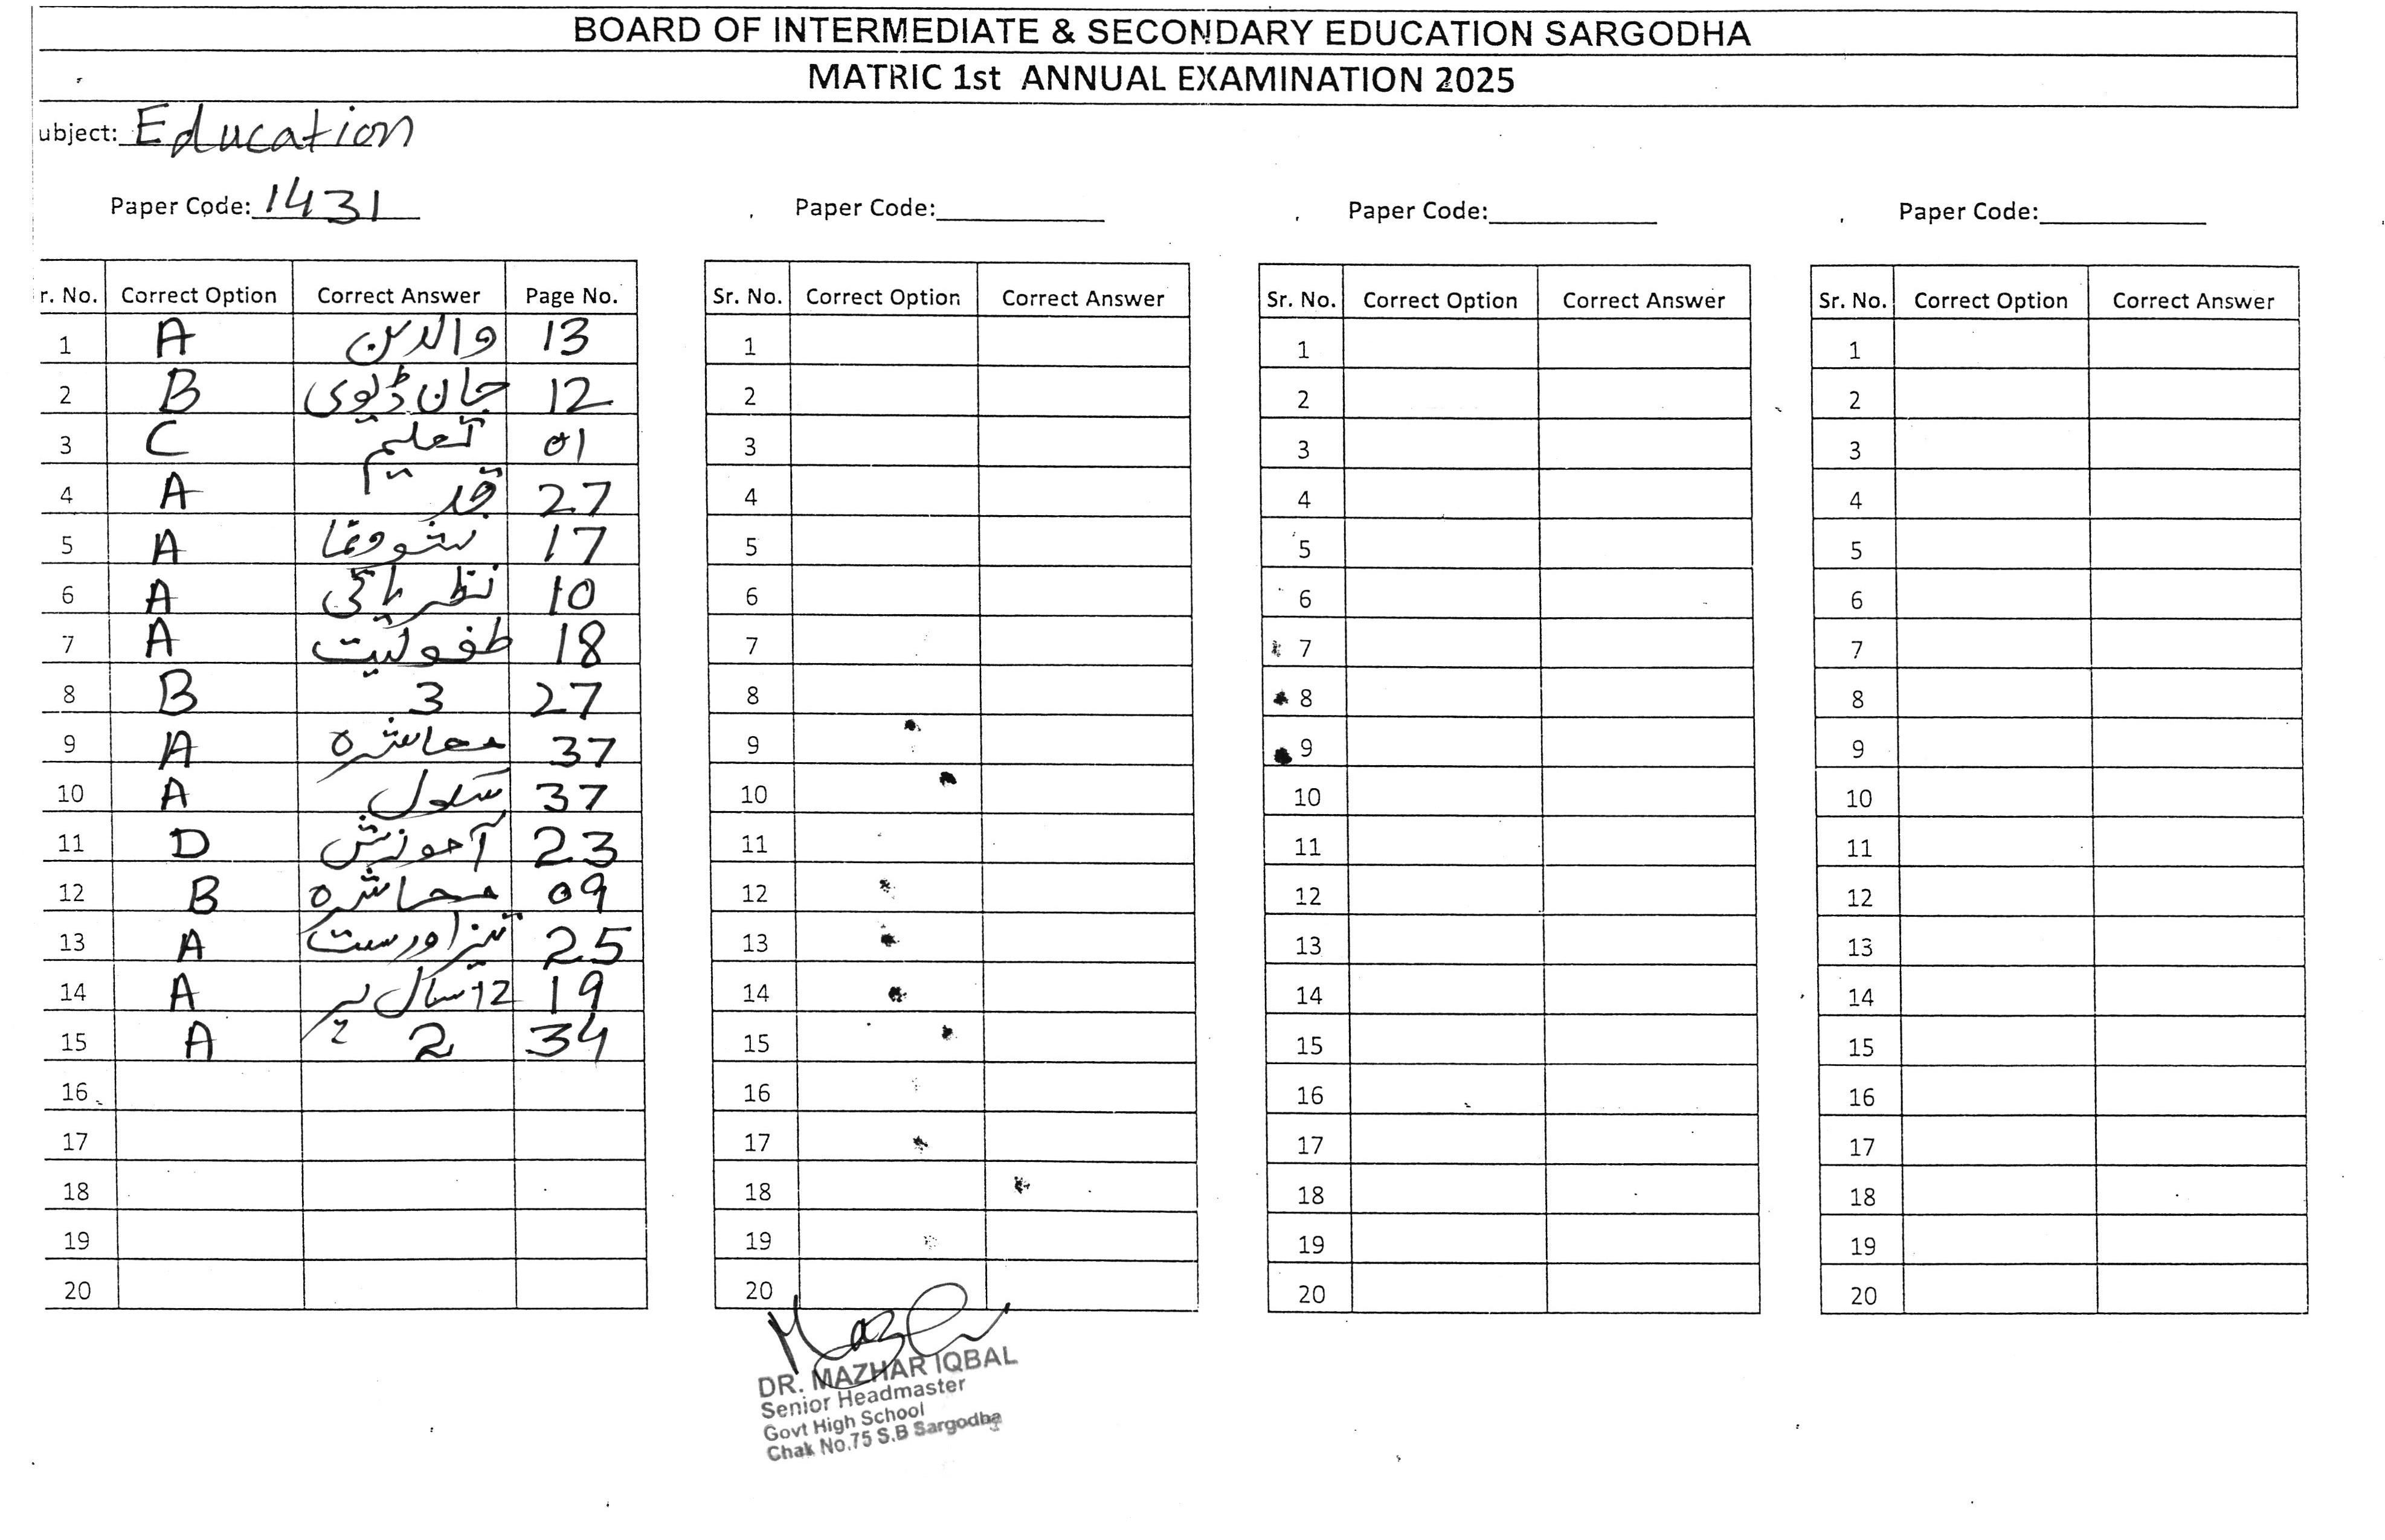 BOARD OF INTERMEDIATE & SECONDARY EDUCATION SARGODHA
MATRIC 1st ANNUAL EXAMINATION 2025
ubject: Education
Paper Code: 1431 Paper Code: Paper Code: Paper Code:
r. No. Correct Option Correct Answer Page No. Sr. No. Correct Option Correct Answer Sr. No. Correct Option Correct Answer Sr. No. Correct Option Correct Answer
1 A والدین 13 1 1 1
2 B جان ڈیوی 12 2 2 2
3 C تعلیم 01 3 3 3
4 A قد 27 4 4 4
5 A نشوونما 17 5 5 5
6 A نظریاتی 10 6 6 6
7 A طفولیت 18 7 7 7
8 B 3 27 8 8 8
9 A معاشرہ 37 9 9 9
10 A سکول 37 10 10 10
11 D آموزش 23 11 11 11
12 B معاشرہ 09 12 12 12
13 A تیز اور ست 25 13 13 13
14 A 12 سال پر 19 14 14 14
15 A 2 34 15 15 15
16 16 16 16
17 17 17 17
18 18 18 18
19 19 19 19
20 20 20 20
DR. MAZHAR IQBAL
Senior Headmaster
Govt High School
Chak No.75 S.B Sargodha